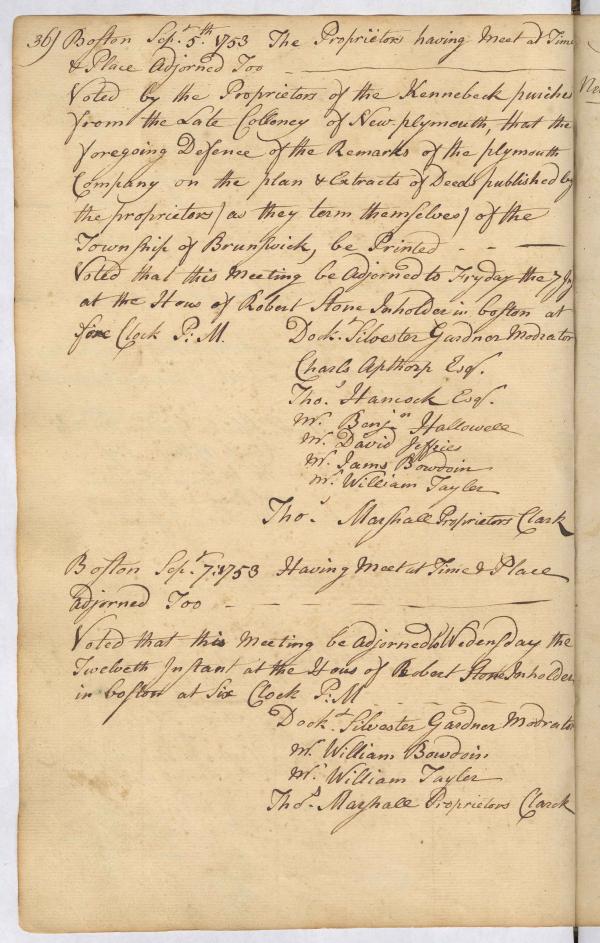 36) Boston Sepr. 5th. 1753 The Proprietors having Meet at Time
& Place Adjorned Too
Voted by the Proprietors of the Kennebeck purches
from the Late Colloney of New plymouth, that the
foregoing Defence of the Remarks of the plymouth
Company on the plan & Extracts of Deeds published by
the proprietors (as they term themselves) of the
Township of Brunswick, be Printed
Voted that this Meeting be Adjorned to Fryday the 7 In
at the Hous of Robert Stone Inholder in boston at
Clock P: M. Dockr. Silvester Gardner Modrator
Charls Apthorp Esqr.
Thos. Hancock Esqr.
Mr. Benjan Hallowell
Mr. David Jeffries
Mr. Jams Bowdoin
Mr. William Tayler
Thos. Marshall Proprietors Clark
Boston Sepr. 7: 1753 Having Meet at Time & Place
Adjorned Too
Voted that this Meeting be Adjorned to Wedensday the
Twelveth Instant at the Hous of Robert Stone Inholder
in boston at Six Clock P: M
Dockt. Silvester Gardner Modrator
Mr. William Bowdoin
Mr. William Tayler
Thos. Marshall Proprietors Clarck